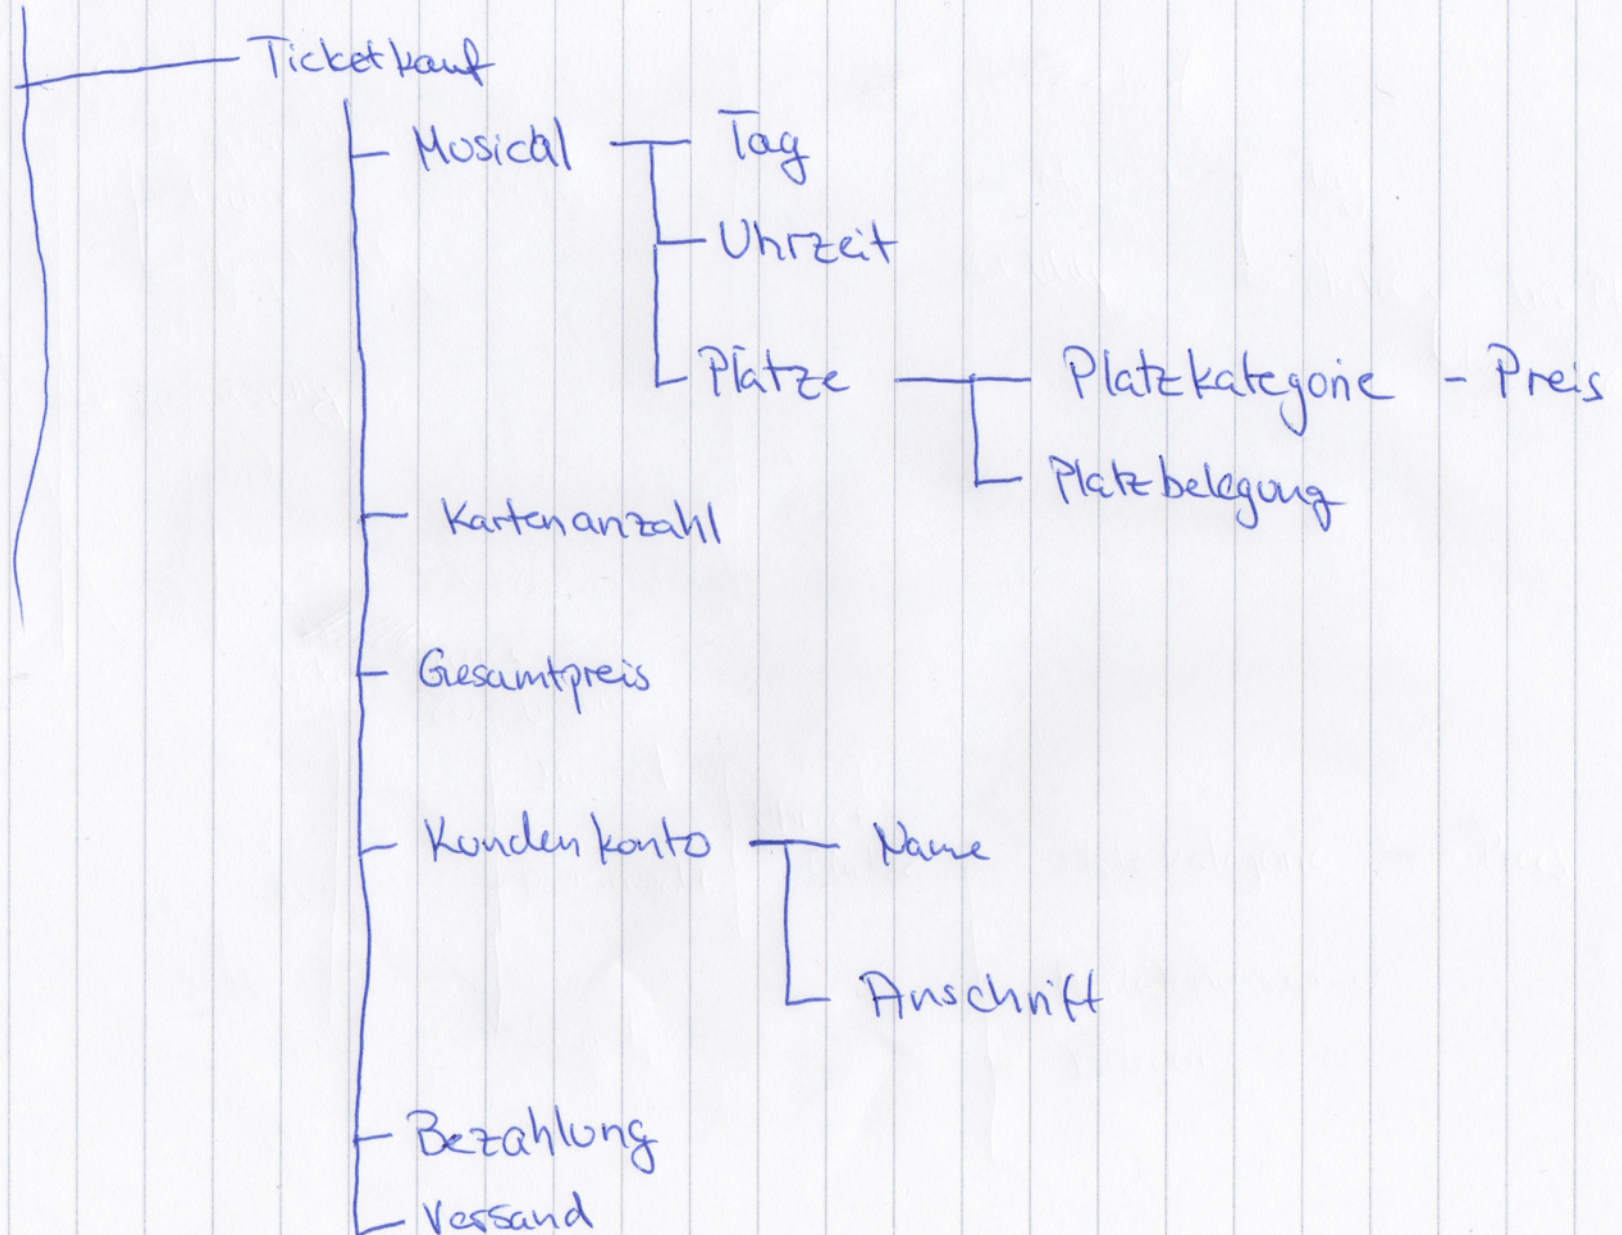 Ticketkauf
Musical Tag
Uhrzeit
Plätze Platzkategorie - Preis
Platzbelegung
Kartenanzahl
Gesamtpreis
Kundenkonto Name
Anschrift
Bezahlung
Versand